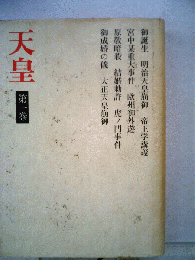 御誕生 明治天皇崩御 帝王学講義
宮中某重大事件 欧州御外遊
原敬暗殺 結婚勅許 虎ノ門事件
御成婚の儀 大正天皇崩御
天皇
第一巻